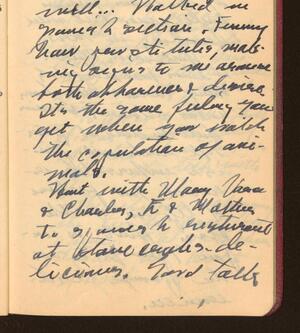 well... Walked in
Spanish section. Funny
how prostitutes, mak-
ing signs to me arouse
both abhorrence & desire.
It's the same feeling you
get when you watch
the copulation of ani-
mals.
Went with Mary, Vera
& Charles, & Mother
to Spanish restaurant
at
de-
licious. Good talk